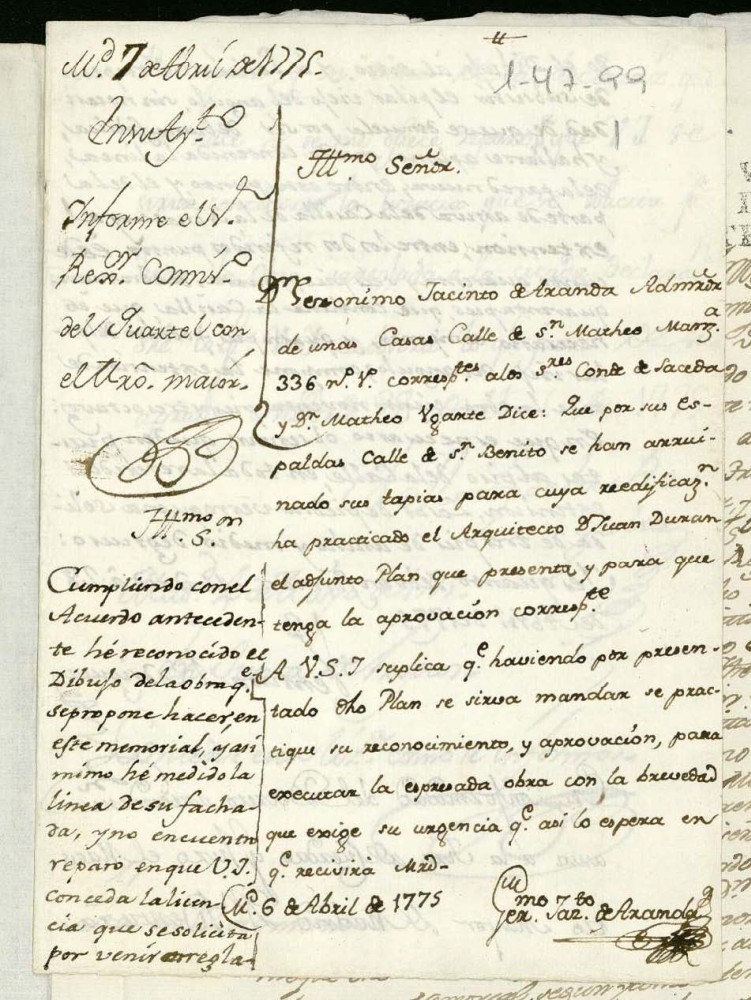 1-47-99
1
M.d 7 de Abril de 1775.
En su Ay.to
Informe el S.
Rex.or Comis.o
del Quartel con
el Mro. maior.
Ill.mo Señor.
D.n Geronimo Jacinto de Aranda Admr.or
de unas Casas Calle de S.n Matheo Manz.a
336 n.o 1.o corresp.tes a los S.res Conde de Saceda
y D.n Matheo Ugarte Dice: Que por sus es-
paldas Calle de S.n Benito se han arrui-
nado sus tapias para cuya reedificaz.n
ha practicado el Arquitecto D.n Juan Duran
el adjunto Plan que presenta, y para que
tenga la aprovacion corresp.te
A V.S.I suplica q.e haviendo por presen-
tado dho Plan se sirva mandar se prac-
tique su reconocimiento, y aprovacion, para
executar la espresada obra con la brevedad
que exige su urgencia q.e asi lo espera en
q.e recivirà Mrd-
M.d 6 de Abril de 1775
Ger.mo Jaz.to de Aranda
Ill.mo S.or
Cumpliendo con el
Acuerdo anteceden-
te hé reconocido el
Dibujo de la obra q.e
se propone hacer, en
este memorial, y asi
mimo hé medido la
linea de su facha-
da, y no encuentro
reparo en que V.I.
conceda la licen-
cia que se solicita
por venir arregla-